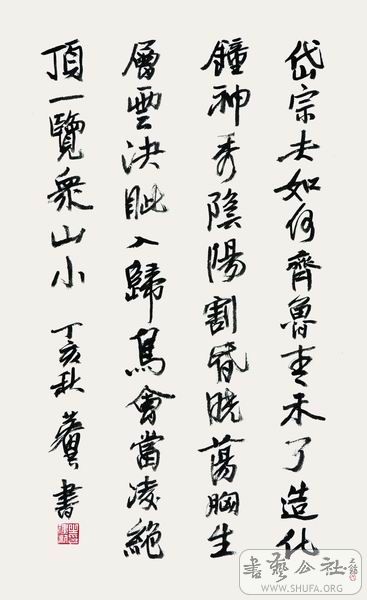 岱宗夫如何齊魯青未了造化
鐘神秀陰陽割昏曉蕩胸生
層雲決眦入歸鳥會當凌絕
頂一覽眾山小 丁亥秋 書
書藝公社
WWW.SHUFA.ORG